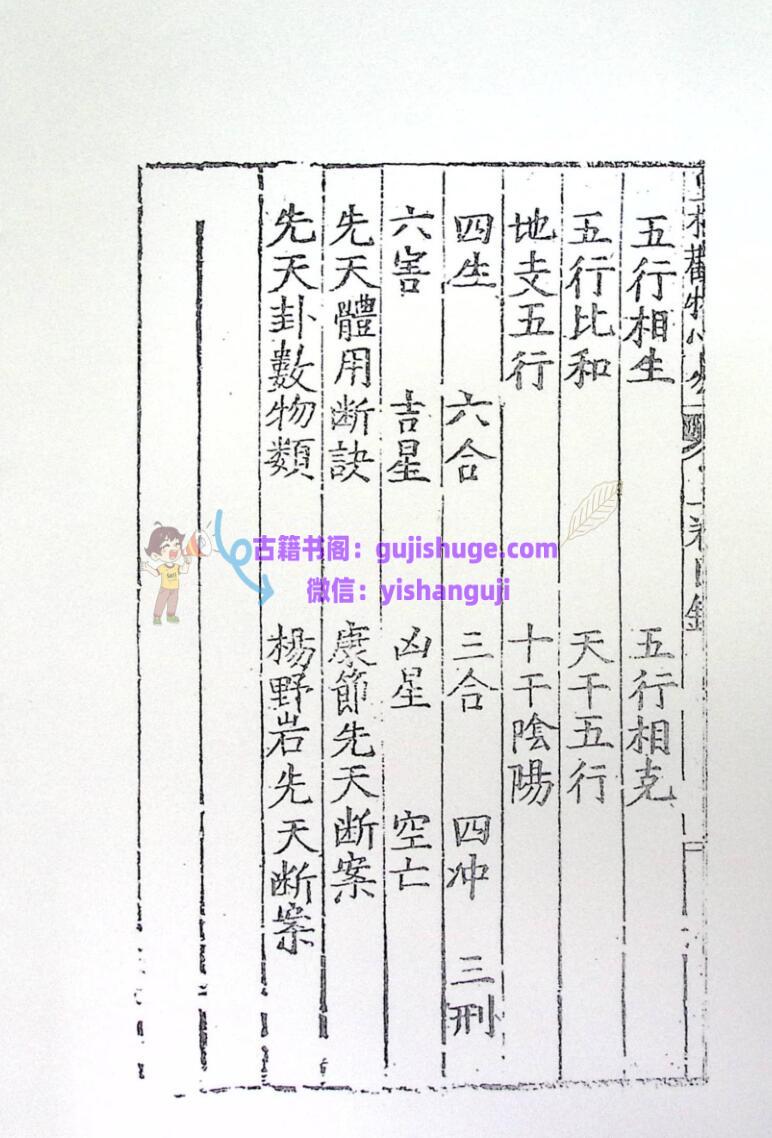 五行相生 五行相克
五行比和 天干五行
地支五行 十干陰陽
四生 六合 三合 四冲 三刑
六害 吉星 凶星 空亡
先天體用断訣 康節先天断案
先天卦數物類 楊野岩先天断案
古籍书阁：gujishuge.com
微信：yishanguji